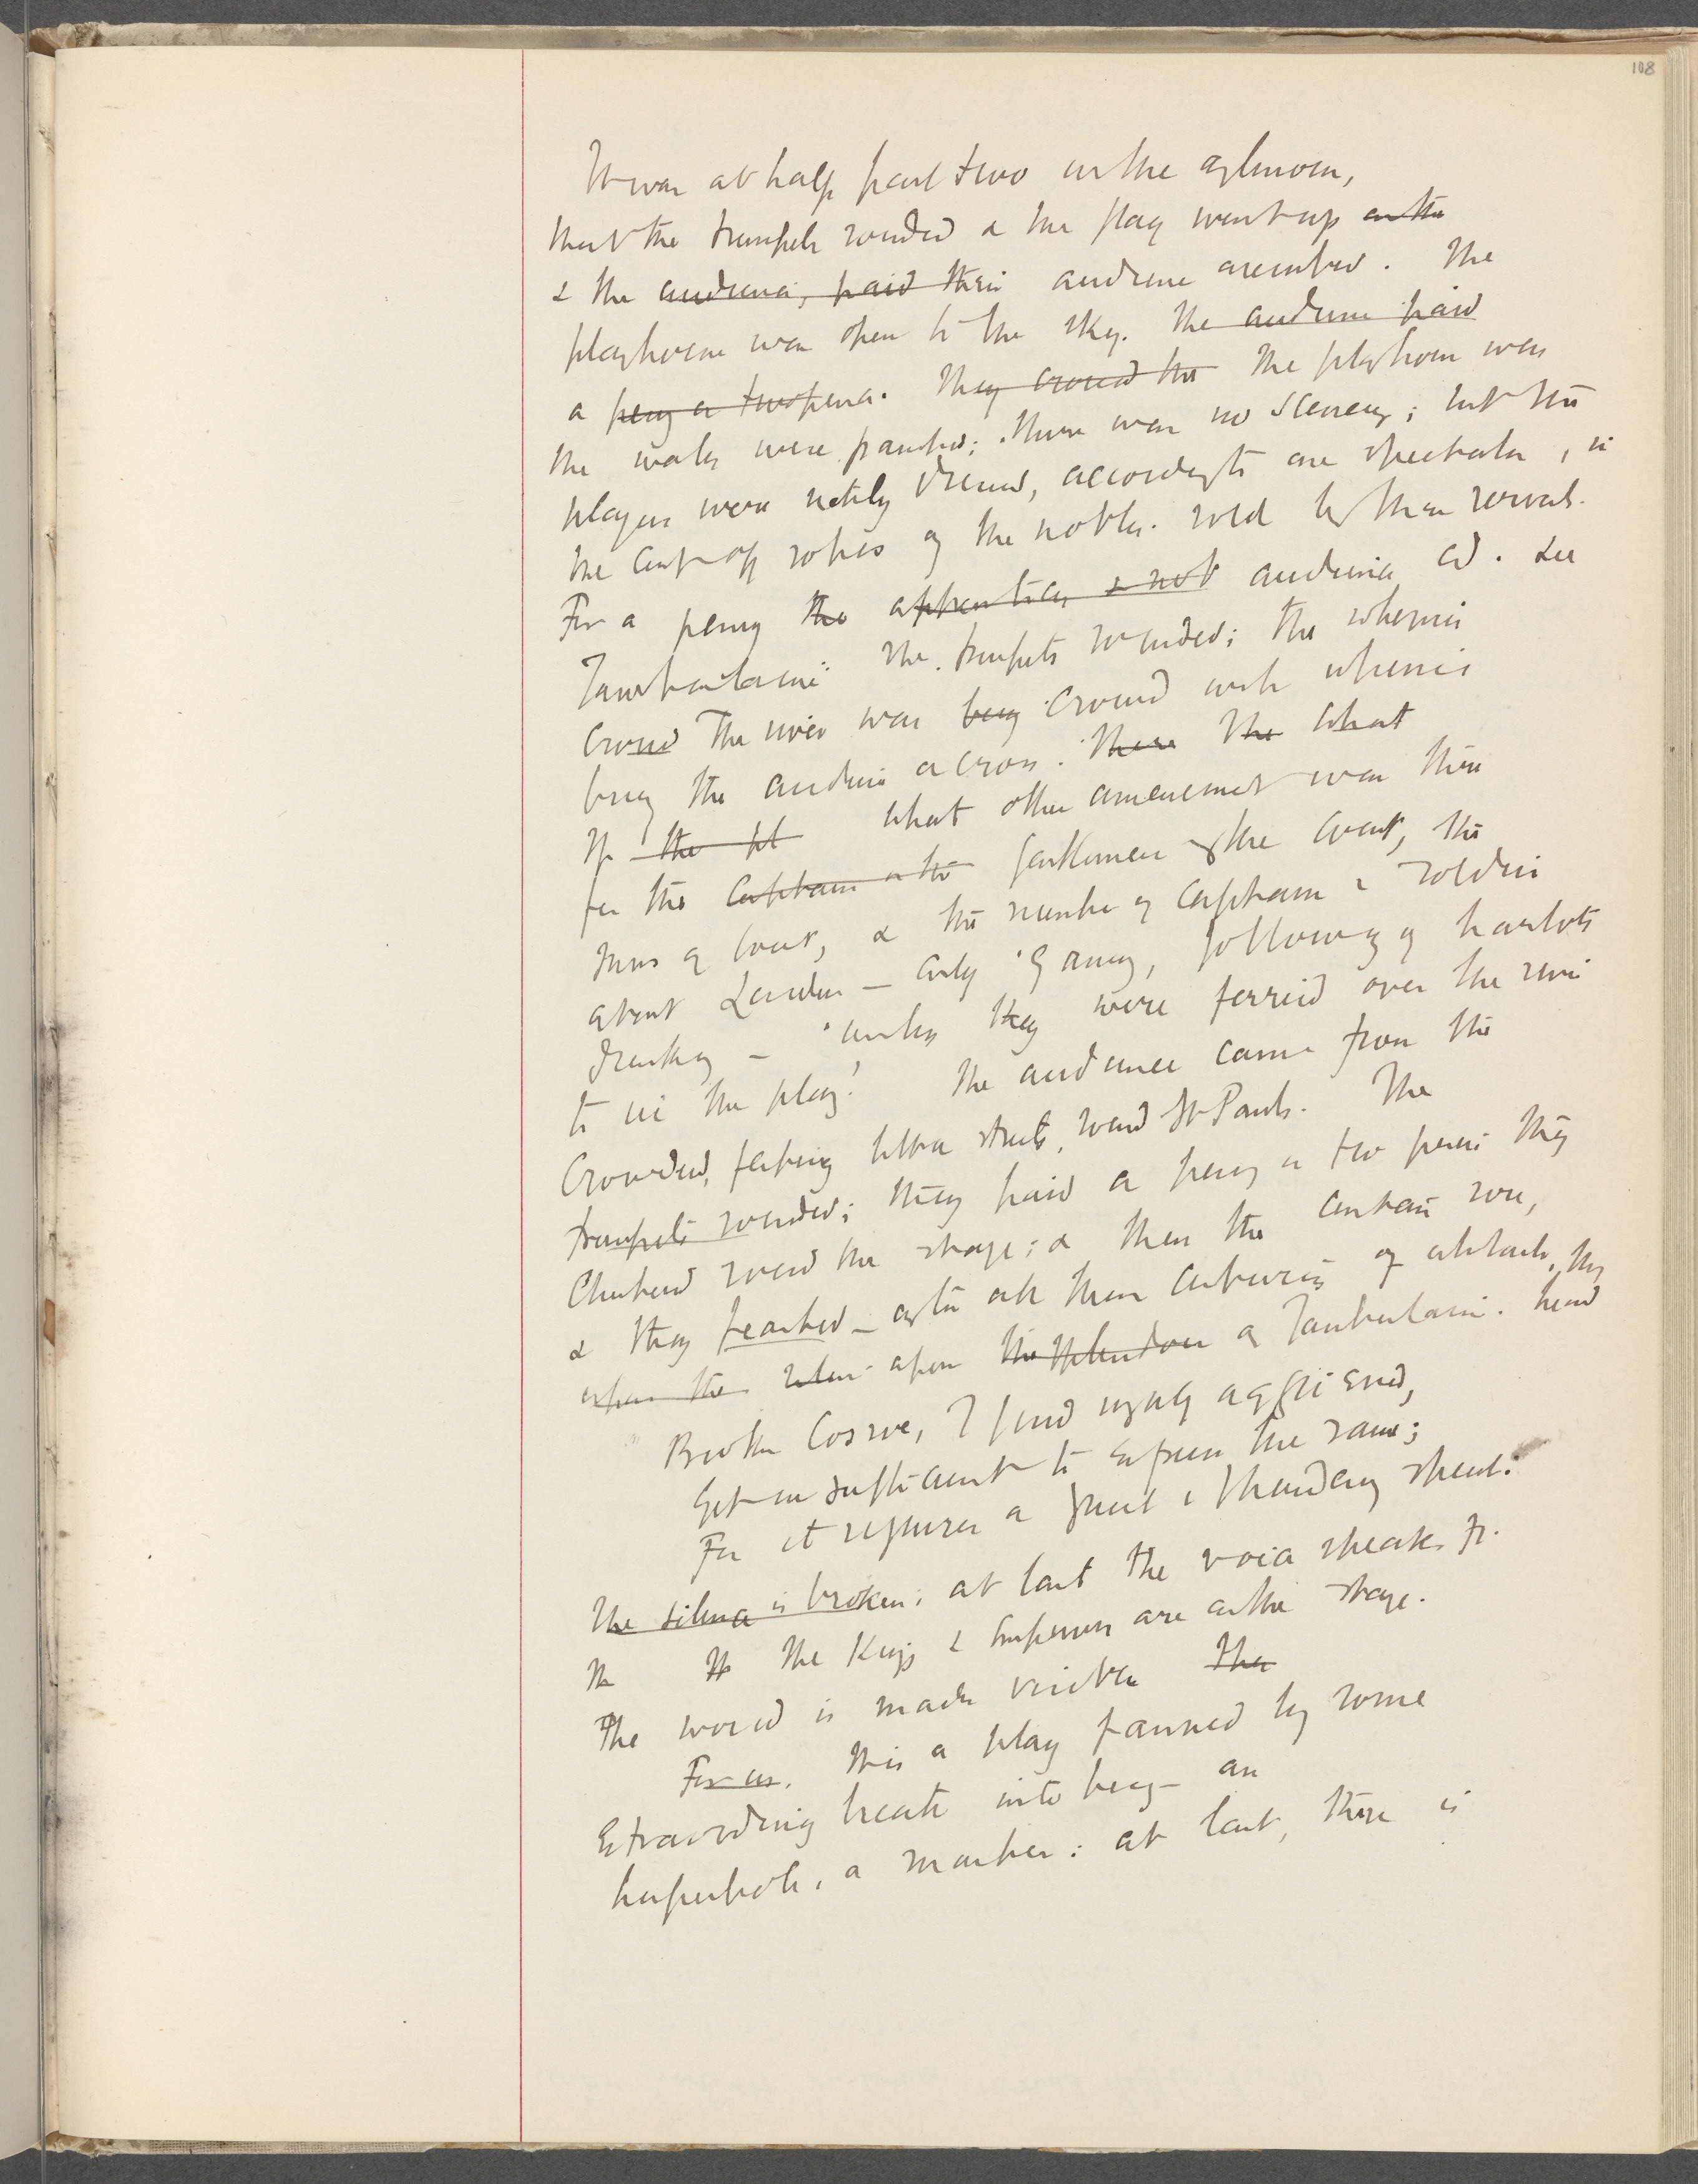 108
It was at half past two in the afternoon,
that the trumpets sounded & the flag went up on the
& the audience, paid their audience assembled. The
playhouse was open to the sky. The audience paid
a penny or twopence. They crowd the The playhouse was
the walls were painted; there was no scenery; but the
players were richly dressed, according to one spectator, in
the cast off robes of the nobles. sold by their servants.
For a penny the apprentices & not audience cd. see
Tamburlaine. The trumpets sounded; the wherries
crowd The river was busy crowded with wherries
bring the audience across. There The What
If the pl what other amusement was there
for the Captains & the gentlemen of the Court, the
Inns of Court, & the number of captains & soldiers
about London — only gaming, following of harlots
drinking — unless they were ferried over the river
to see the play? The audience came from the
crowded, little streets, round St Pauls. The
trumpets sounded; they paid a penny or two pence they
clustered round the stage; & then the curtain rose,
& they feasted — after all these centuries of they
upon the upon the splendour of Tamburlaine. heard
Brother Cosroe, I find myself aggrieved,
Yet insufficient to express the same;
For it requires a great & thundering speech.
The silence is broken; at last the voice speaks fr.
Th Th The Kings & Emperors are on the stage.
The world is made visible The
For us. It is a play fanned by some
Extraordinary breath into being — an
hyperbole, a : at last, there is